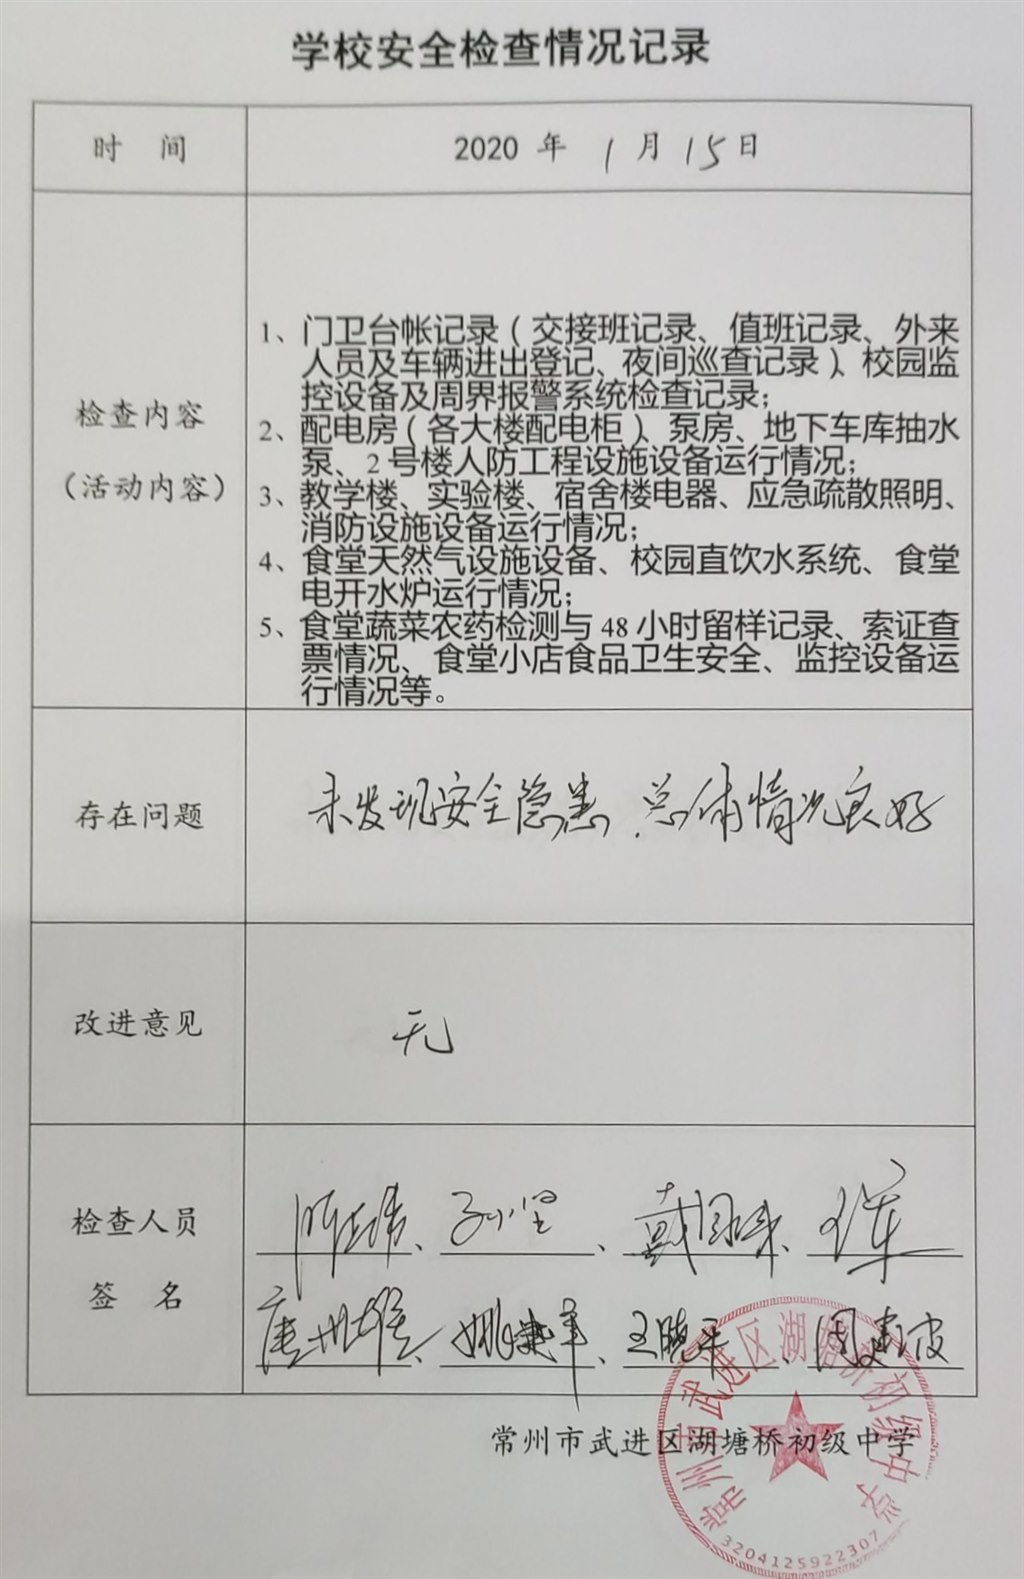 学校安全检查情况记录
时 间
2020 年 1 月 15 日
检查内容
（活动内容）
1、门卫台帐记录（交接班记录、值班记录、外来
人员及车辆进出登记、夜间巡查记录）、校园监
控设备及周界报警系统检查记录；
2、配电房（各大楼配电柜）、泵房、地下车库抽水
泵、2 号楼人防工程设施设备运行情况；
3、教学楼、实验楼、宿舍楼电器、应急疏散照明、
消防设施设备运行情况；
4、食堂天然气设施设备、校园直饮水系统、食堂
电开水炉运行情况；
5、食堂蔬菜农药检测与 48 小时留样记录、索证查
票情况、食堂小店食品卫生安全、监控设备运
行情况等。
存在问题
未发现安全隐患，总体情况良好
改进意见
无
检查人员
签 名
、孙坚、、王军
、、王晓平、周建波
常州市武进区湖塘桥初级中学
常州市武进区湖塘桥初级中学
3204125922307